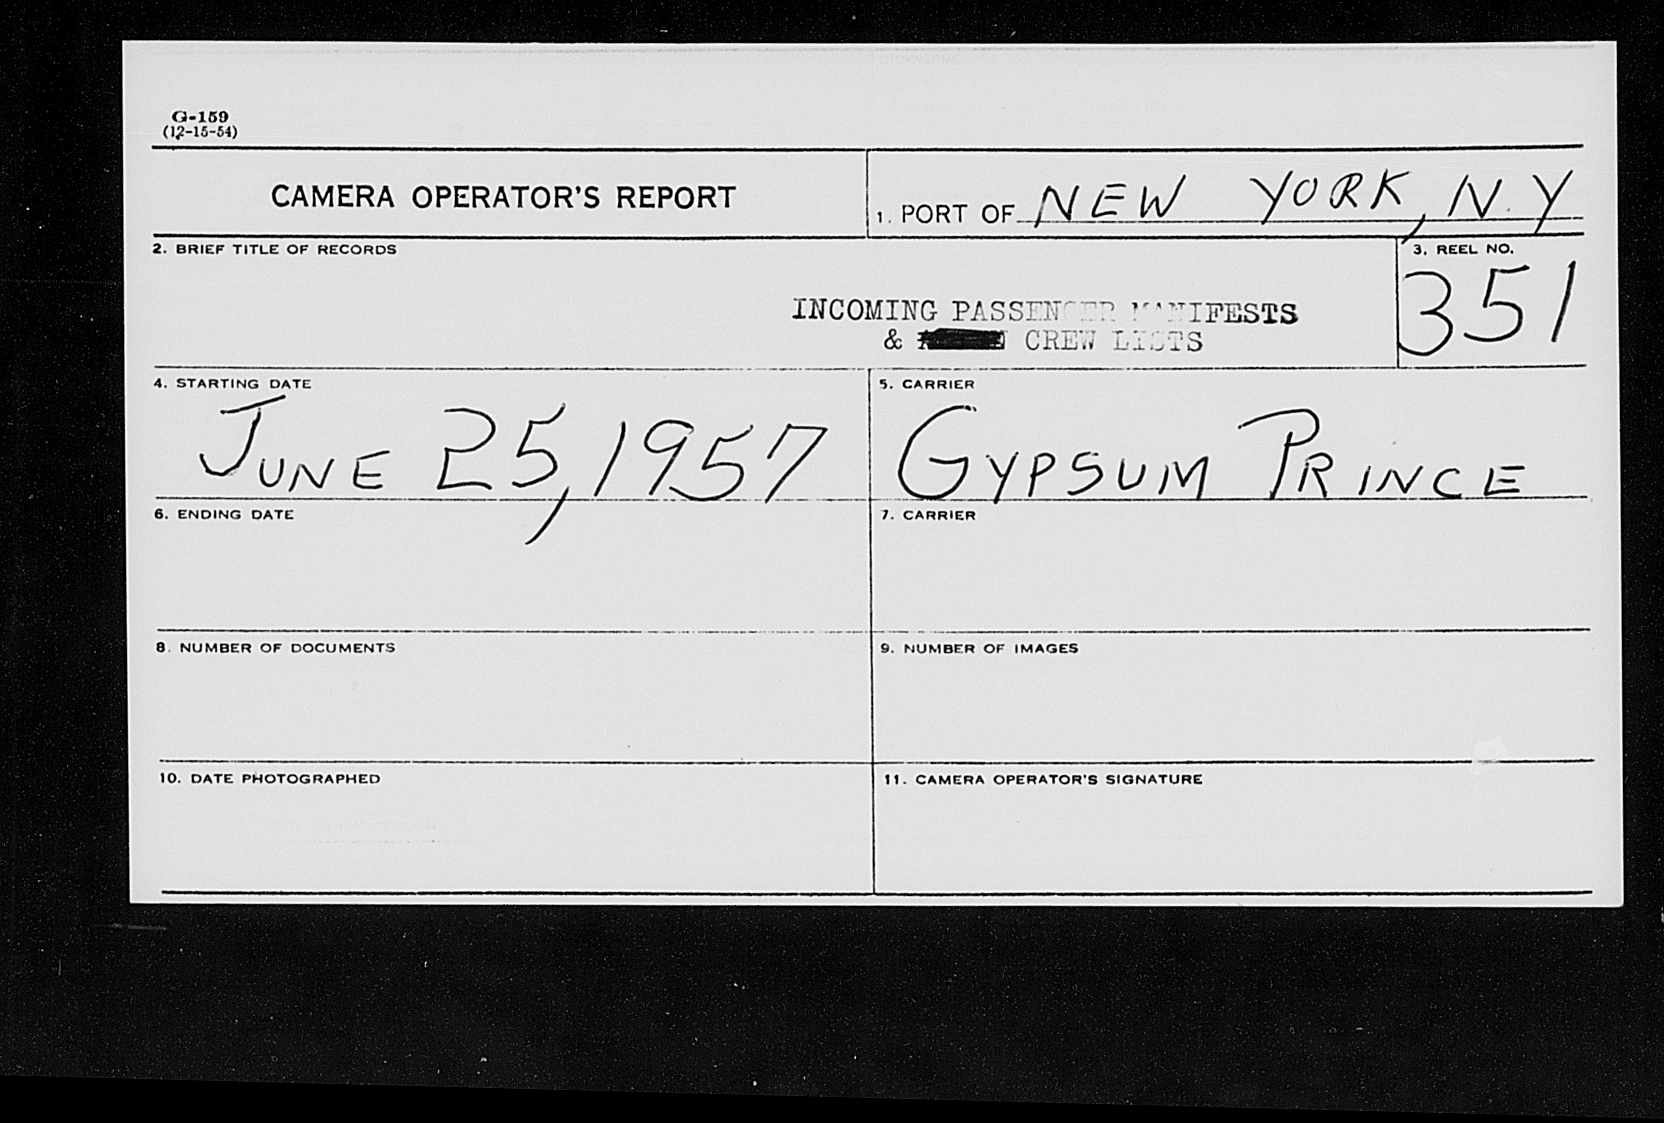 G-159
(12-15-54)
CAMERA OPERATOR'S REPORT
1. PORT OF NEW YORK, N.Y
2. BRIEF TITLE OF RECORDS
INCOMING PASSENGER MANIFESTS
& CREW LISTS
3. REEL NO.
351
4. STARTING DATE
JUNE 25, 1957
5. CARRIER
GYPSUM PRINCE
6. ENDING DATE
7. CARRIER
8. NUMBER OF DOCUMENTS
9. NUMBER OF IMAGES
10. DATE PHOTOGRAPHED
11. CAMERA OPERATOR'S SIGNATURE